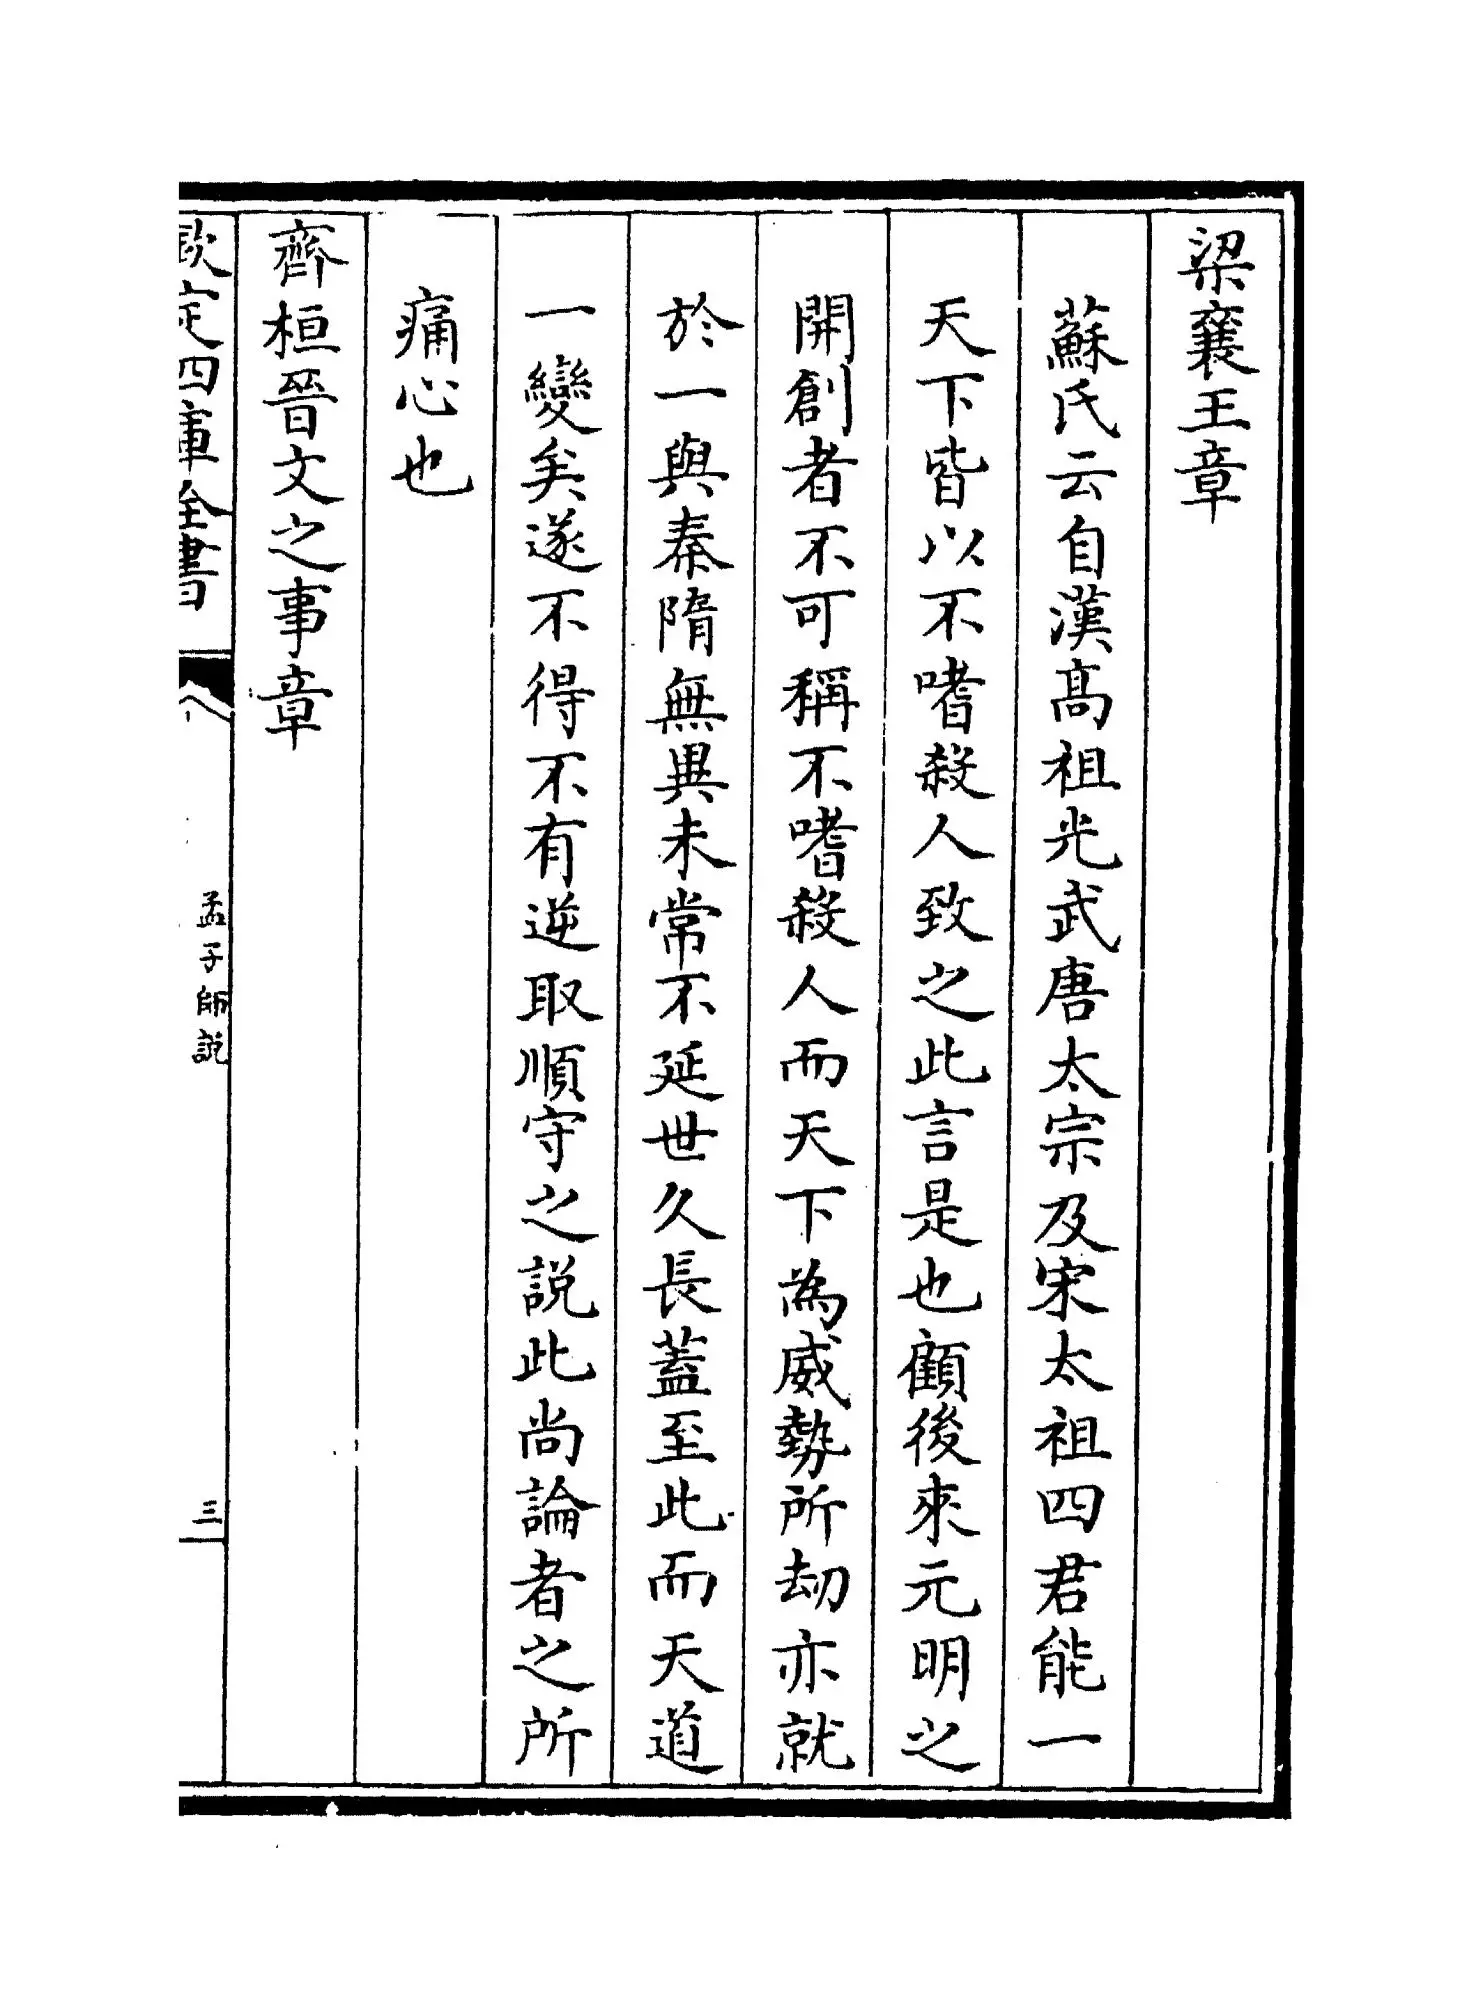 梁襄王章
蘇氏云自漢髙祖光武唐太宗及宋太祖四君能一
天下皆以不嗜殺人致之此言是也顧後來元明之
開創者不可稱不嗜殺人而天下為威勢所劫亦就
於一與秦隋無異未常不延世久長蓋至此而天道
一變矣遂不得不有逆取順守之説此尚論者之所
痛心也
齊桓晉文之事章
欽定四庫全書
孟子師說
三